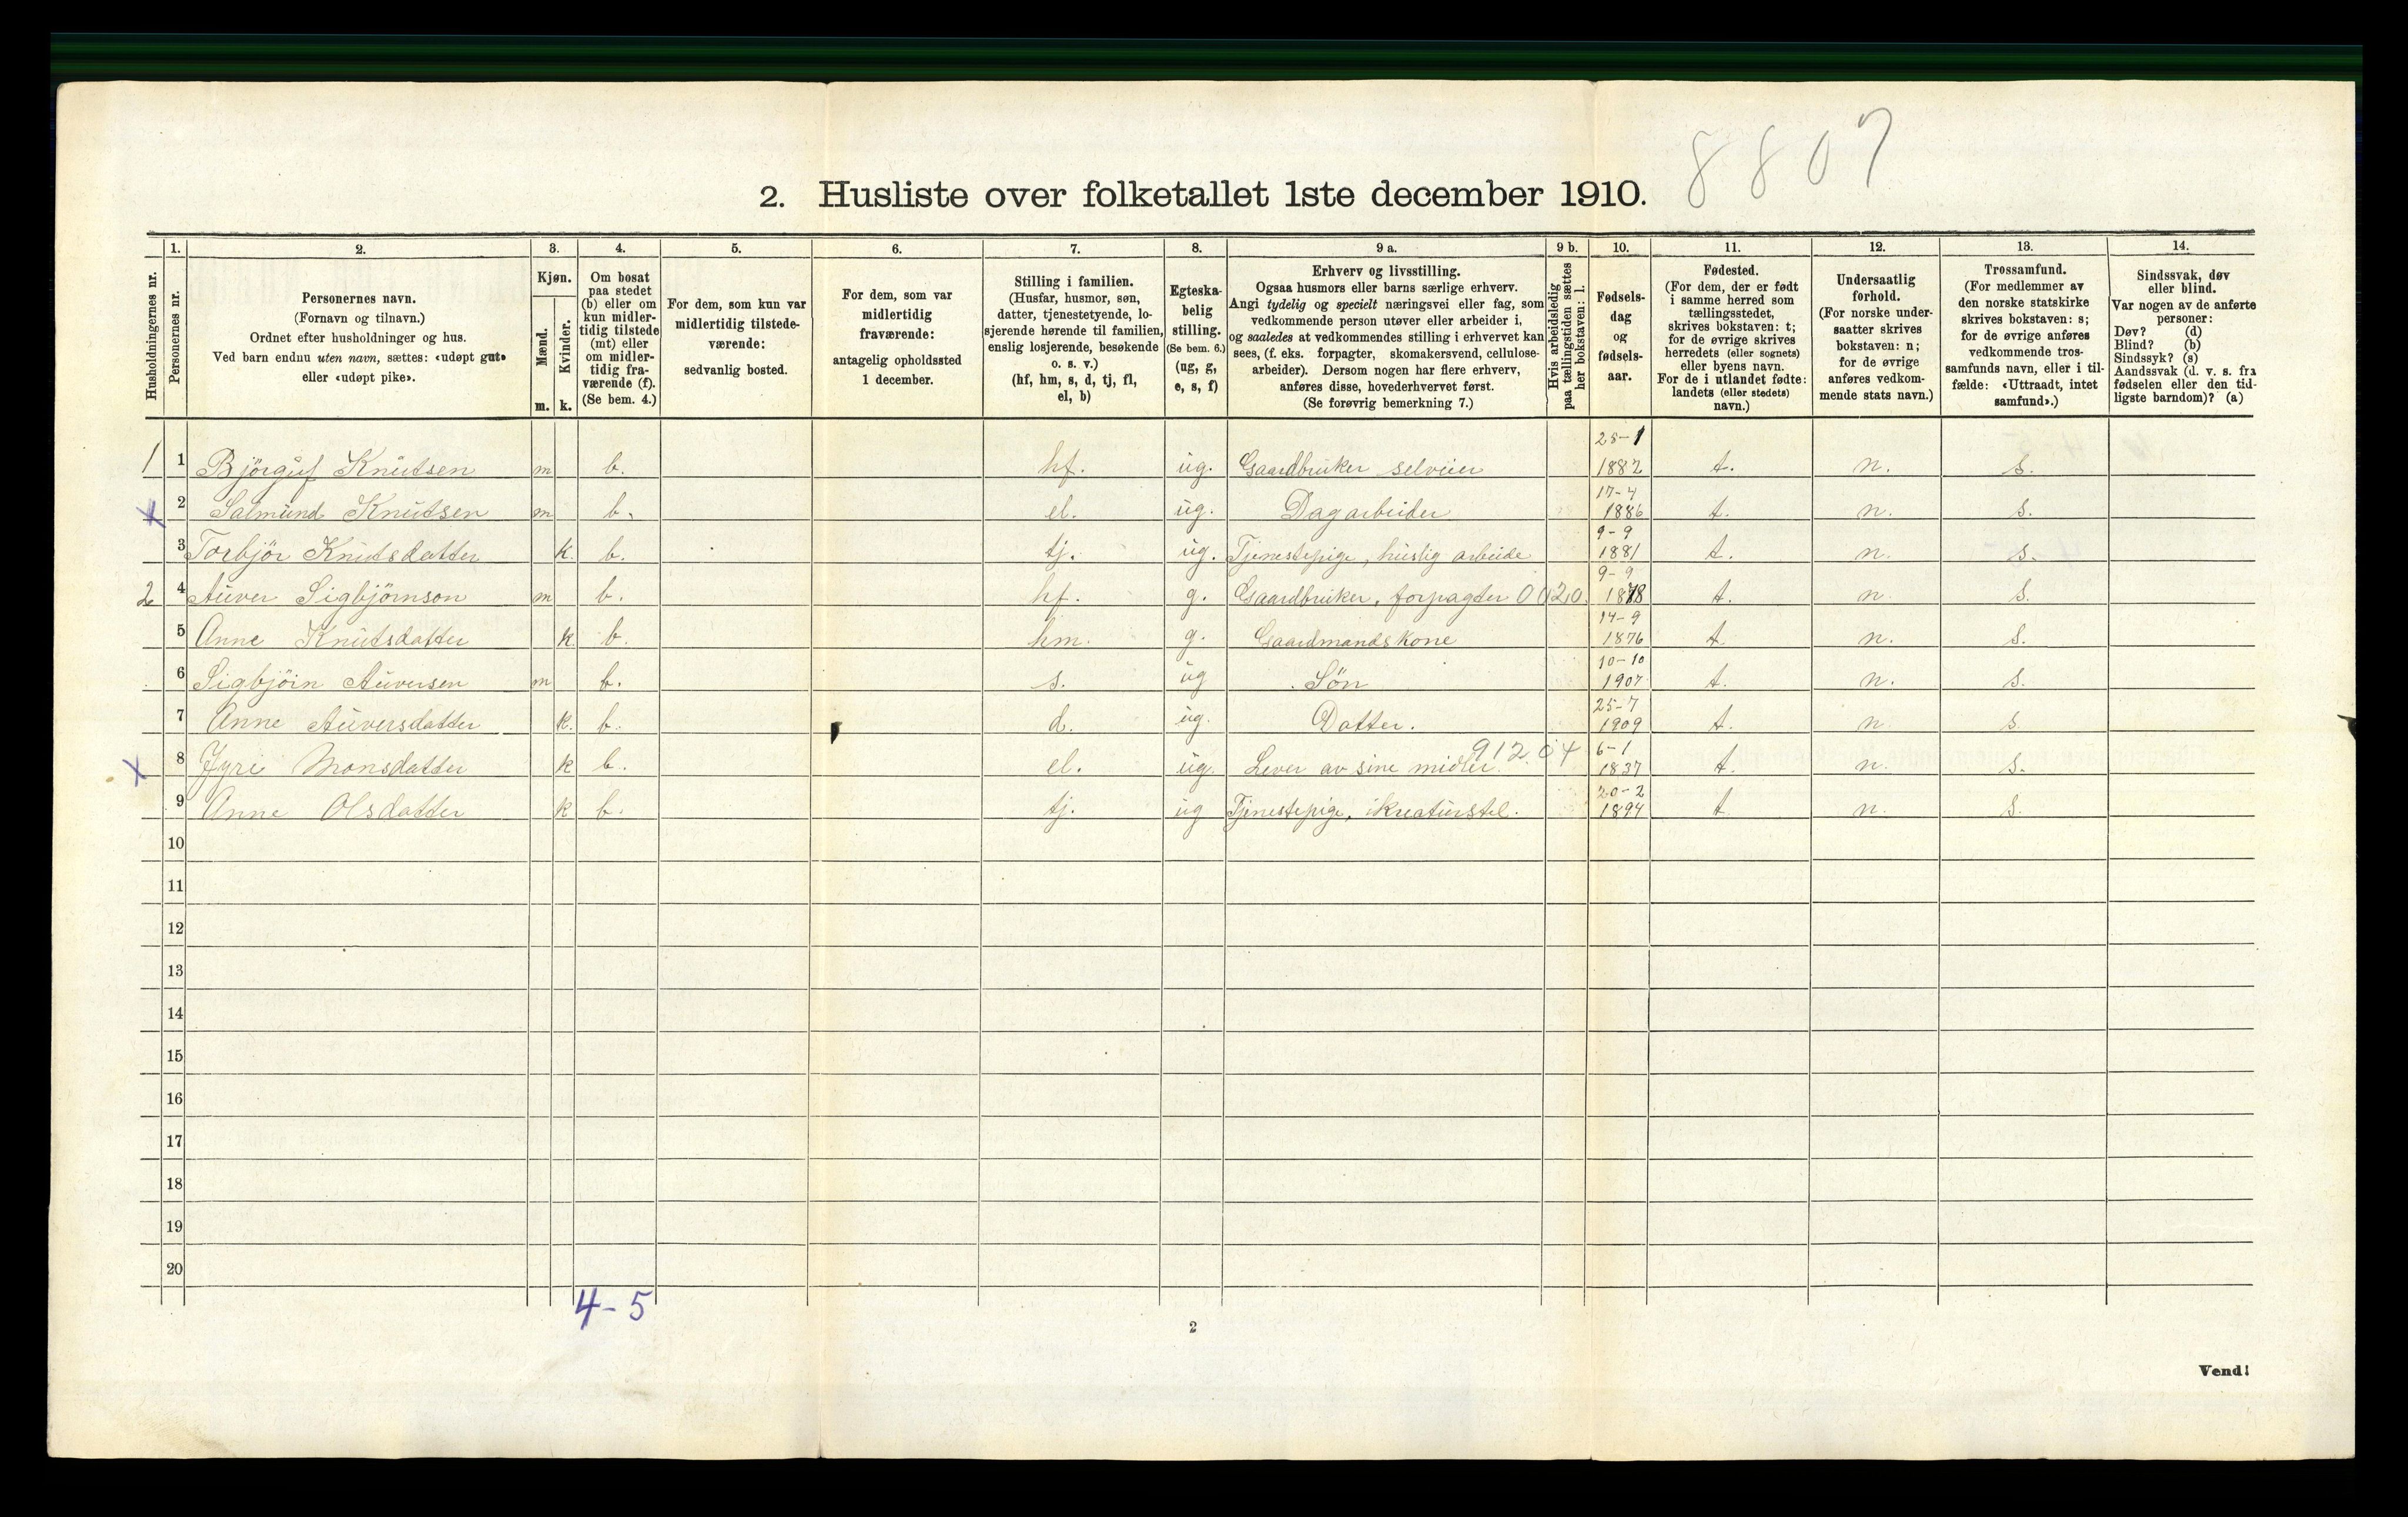 8807
2. Husliste over folketallet 1ste december 1910.
1. 2. 3. 4. 5. 6. 7. 8. 9 a. 9 b. 10. 11. 12. 13. 14.
Husholdningernes nr.
Personernes nr.
Personernes navn.
(Fornavn og tilnavn.)
Ordnet efter husholdninger og hus.
Ved barn endnu uten navn, sættes: «udøpt gut»
eller «udøpt pike».
Kjøn.
Mænd.
Kvinder.
m. k.
Om bosat
paa stedet
(b) eller om
kun midler-
tidig tilstede
(mt) eller
om midler-
tidig fra-
værende (f).
(Se bem. 4.)
For dem, som kun var
midlertidig tilstede-
værende:
sedvanlig bosted.
For dem, som var
midlertidig
fraværende:
antagelig opholdssted
1 december.
Stilling i familien.
(Husfar, husmor, søn,
datter, tjenestetyende, lo-
sjerende hørende til familien,
enslig losjerende, besøkende
o. s. v.)
(hf, hm, s, d, tj, fl,
el, b)
Egteska-
belig
stilling.
(Se bem. 6.)
(ug, g,
e, s, f)
Erhverv og livsstilling.
Ogsaa husmors eller barns særlige erhverv.
Angi tydelig og specielt næringsvei eller fag, som
vedkommende person utøver eller arbeider i,
og saaledes at vedkommendes stilling i erhvervet kan
sees, (f. eks. forpagter, skomakersvend, cellulose-
arbeider). Dersom nogen har flere erhverv,
anføres disse, hovederhvervet først.
(Se forøvrig bemerkning 7.)
Hvis arbeidsledig
paa tællingstiden sættes
her bokstaven: l.
Fødsels-
dag
og
fødsels-
aar.
Fødested.
(For dem, der er født
i samme herred som
tællingsstedet,
skrives bokstaven: t;
for de øvrige skrives
herredets (eller sognets)
eller byens navn.
For de i utlandet fødte:
landets (eller stedets)
navn.)
Undersaatlig
forhold.
(For norske under-
saatter skrives
bokstaven: n;
for de øvrige
anføres vedkom-
mende stats navn.)
Trossamfund.
(For medlemmer av
den norske statskirke
skrives bokstaven: s;
for de øvrige anføres
vedkommende tros-
samfunds navn, eller i til-
fælde: «Uttraadt, intet
samfund».)
Sindssvak, døv
eller blind.
Var nogen av de anførte
personer:
Døv? (d)
Blind? (b)
Sindssyk? (s)
Aandssvak (d. v. s. fra
fødselen eller den tid-
ligste barndom)? (a)
1 1 Bjørguf Knutsen m b. hf. ug. Gaardbruker selveier 28-1 1882 t. n. s.
x 2 Salmund Knutsen m b. el. ug. Dagarbeider 17-4 1886 t. n. s.
3 Torbjör Knutsdatter k. b. tj. ug. Tjenestepige, huslig arbeide 9-9 1881 t. n. s.
2 4 Auver Sigbjörnson m b. hf. g. Gaardbruker, forpagter 0020. 9-9 1878 t. n. s.
5 Anne Knutsdatter k b. hm. g. Gaardmandskone 14-9 1876 t. n. s.
6 Sigbjörn Auversen m b. s. ug Søn 10-10 1907 t. n. s.
7 Anne Auversdatter k. b. d. ug. Datter. 25-7 1909 t. n s.
x 8 Jyri Monsdatter k b. el. ug. Lever av sine midler. 912.04 6-1 1837 t. n. s.
9 Anne Olsdatter k b. tj. ug Tjenestepige, i kreaturstel. 20-2 1894 t. n. s.
10
11
12
13
14
15
16
17
18
19
20
4-5
2
Vend!